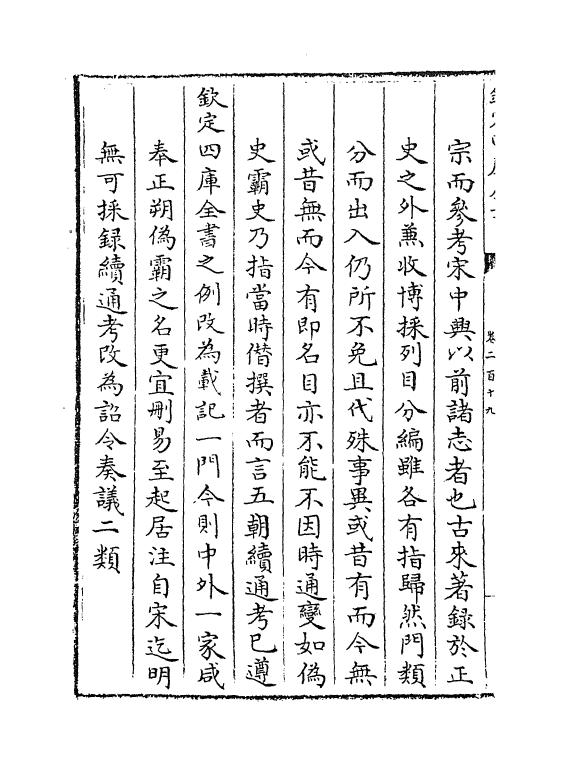 宗而參考宋中興以前諸志者也古來著録於正
史之外兼收博採列目分編雖各有指歸然門類
分而出入仍所不免且代殊事異或昔有而今無
或昔無而今有即名目亦不能不因時通變如偽
史霸史乃指當時僭撰者而言五朝續通考已遵
欽定四庫全書之例改為載記一門今則中外一家咸
奉正朔偽霸之名更宜刪易至起居注自宋迄明
無可採録續通考改為詔令奏議二類
卷二百十九